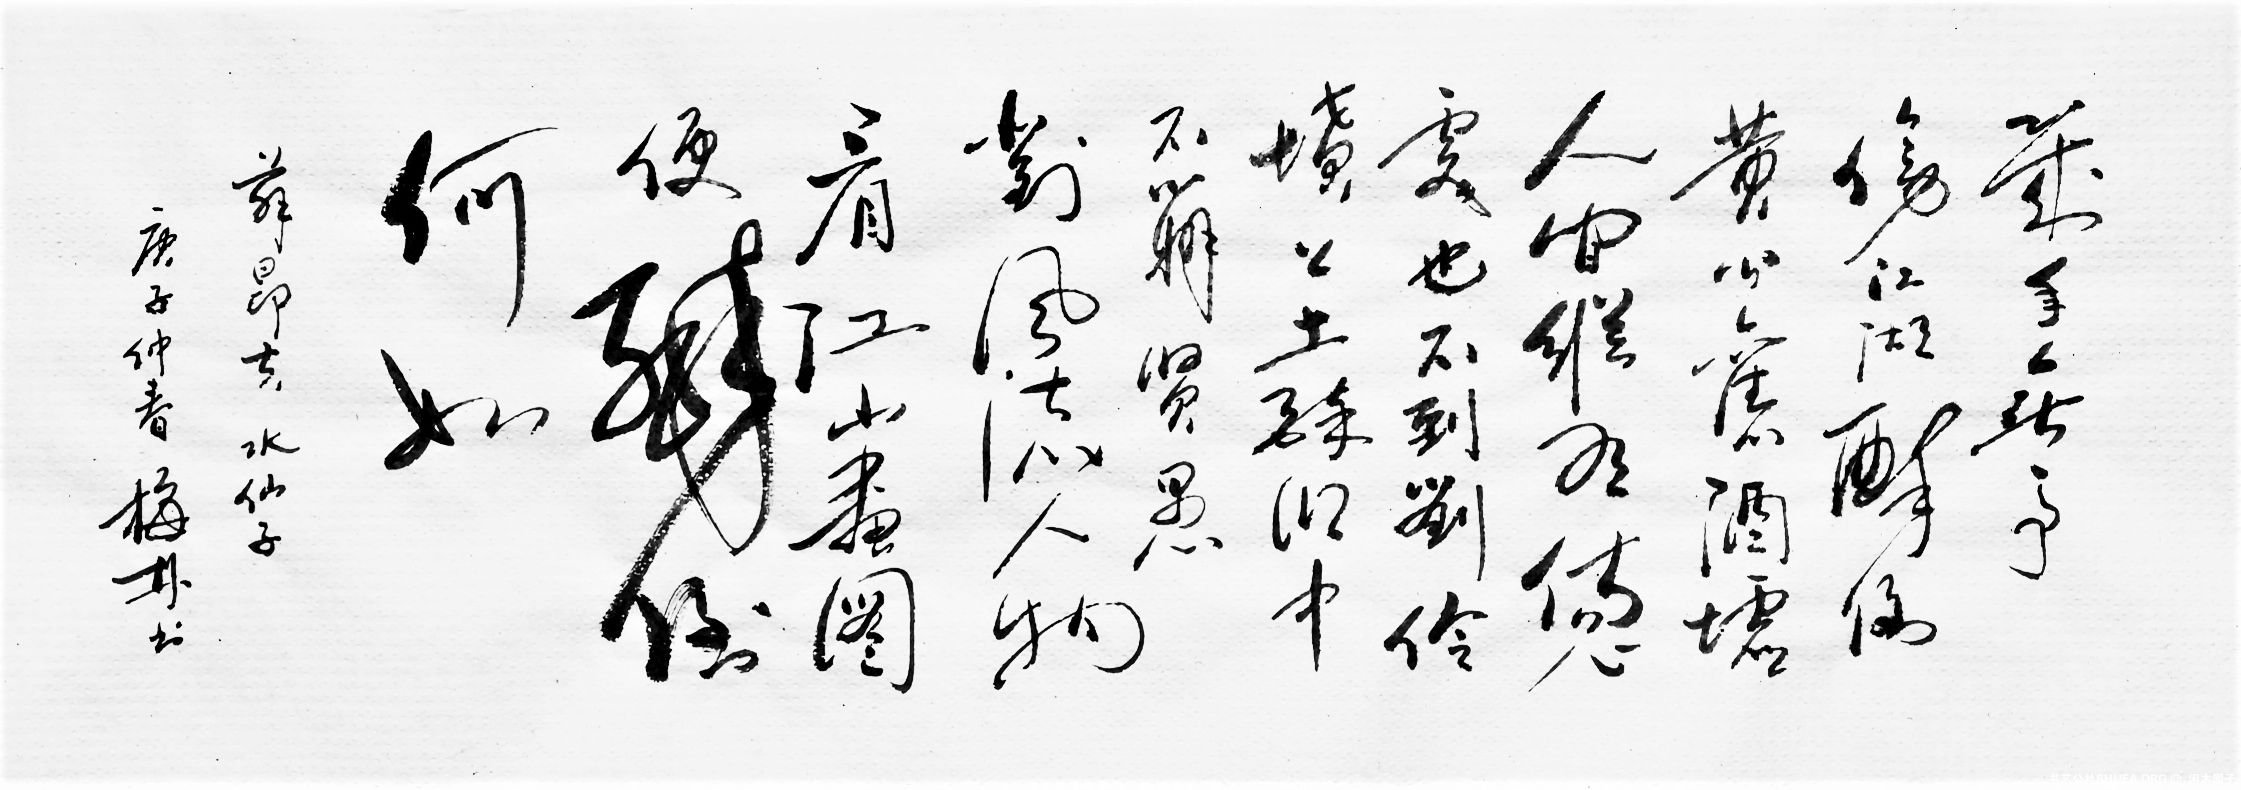 幾年無事
傍江湖醉倒
黄公舊酒壚
人间縱有傷心
處也不到劉伶
墳上土醉鄉中
不辨賢愚
對風流人物
看江山畫圖
便醉倒
何如
薛昂夫 水仙子
庚子仲春 梅书
SHUFA.ORG